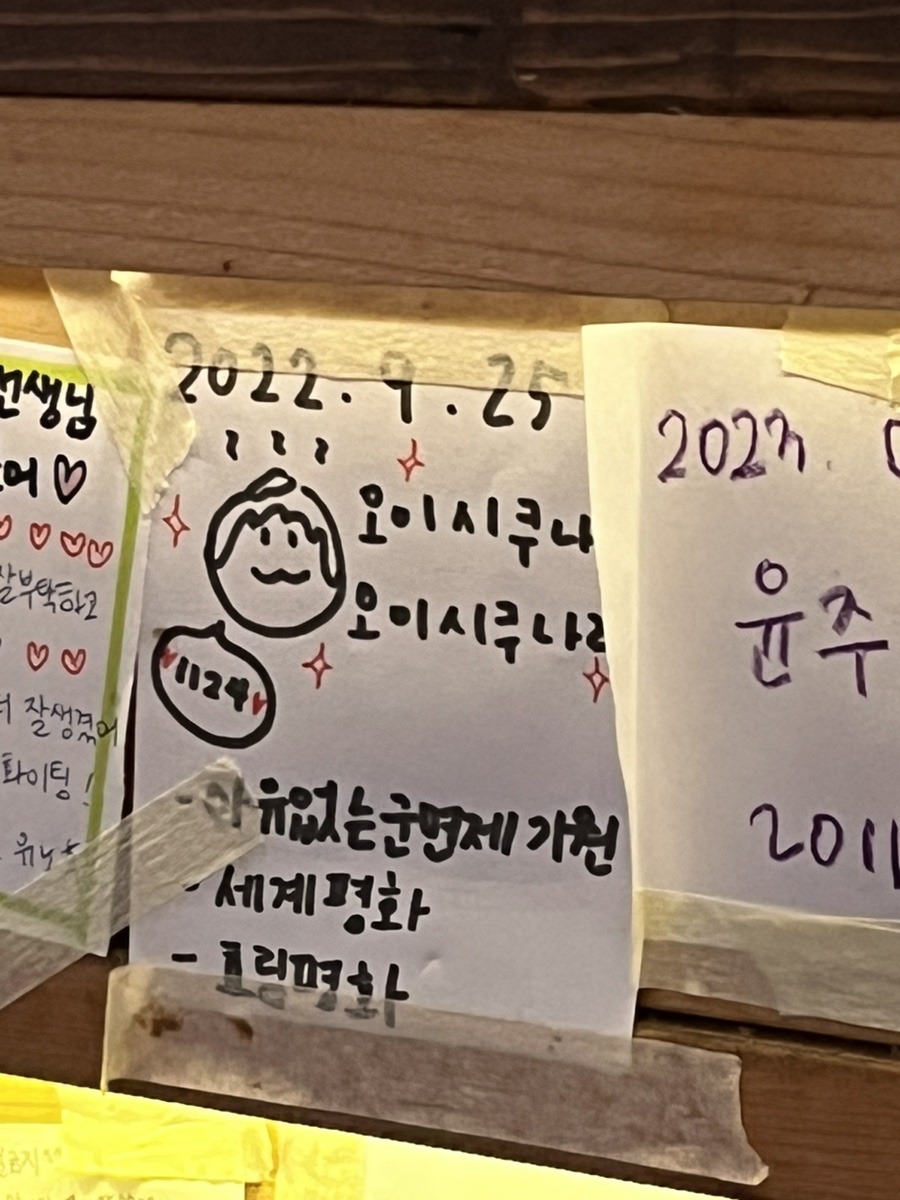 선생님
♡
잘부탁하고
잘생겼어
화이팅!
2022.9.25
오이시쿠나
오이시쿠나
1124
유없는군면제 기원
세계평화
- 평화
202
윤주
201